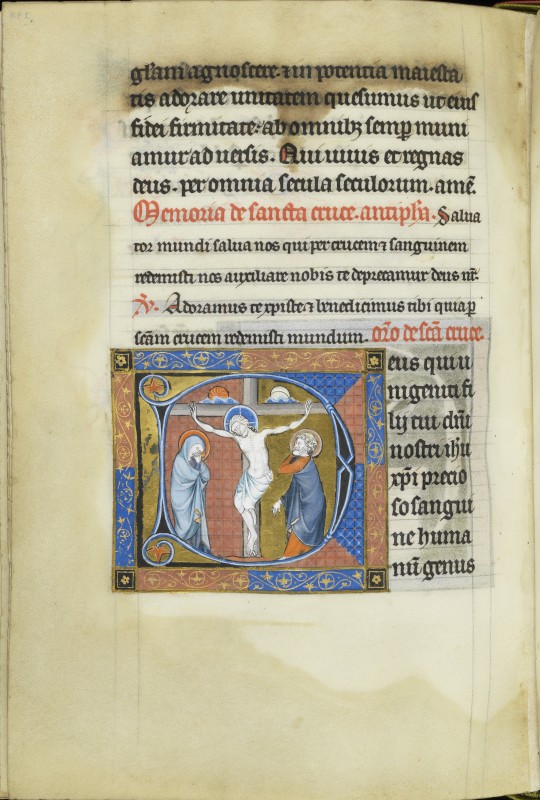 gl'am agnoscere. ⁊ in potentia maiesta
tis adorare unitatem quesumus ut eius
fidei firmitate. ab omnibȝ semp muni
amur ad uersis. Qui uiuis et regnas
deus. per omnia secula seculorum. amē.
Memoria de sancta cruce. antiph̄a. Salua
tor mundi salua nos qui per crucem ⁊ sanguinem
redemisti nos auxiliare nobis te deprecamur deus nr̄.
v̄. Adoramus te xp̄iste. ⁊ benedicimus tibi quia ꝑ
sc̄am crucem redemisti mundum. or̄o de sc̄a cruce.
Deus qui u
nigeniti fi
lij tui dn̄i
nostri ih̄u
xp̄i precio
so sangui
ne huma
nū genus